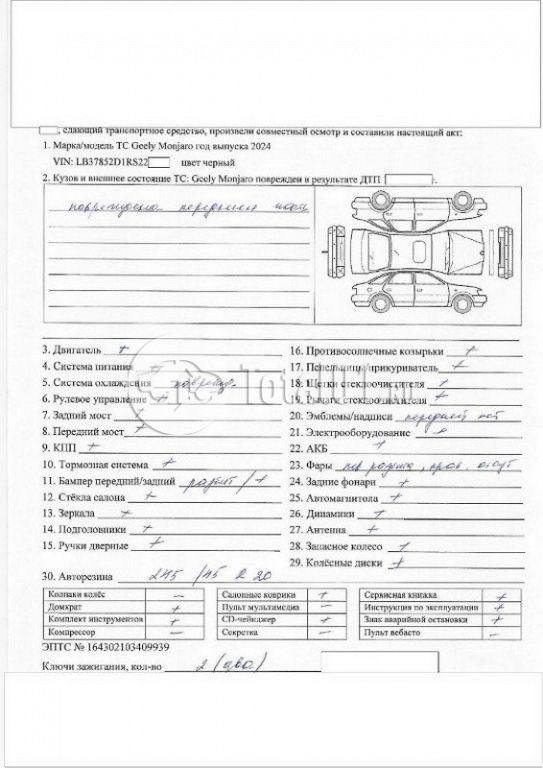 , сдающий транспортное средство, произвели совместный осмотр и составили настоящий акт:
1. Марка/модель ТС Geely Monjaro год выпуска 2024
VIN: LB37852D1RS22 цвет черный
2. Кузов и внешнее состояние ТС: Geely Monjaro поврежден в результате ДТП г.
повреждена передняя
3. Двигатель +
4. Система питания +
5. Система охлаждения поврежд.
6. Рулевое управление +
7. Задний мост +
8. Передний мост +
9. КПП +
10. Тормозная система +
11. Бампер передний/задний разбит / +
12. Стёкла салона +
13. Зеркала +
14. Подголовники +
15. Ручки дверные +
16. Противосолнечные козырьки +
17. Пепельницы/прикуриватель +
18. Щетки стеклоочистителя +
19. Рычаги стеклоочистителя +
20. Эмблемы/надписи передней нет
21. Электрооборудование +
22. АКБ +
23. Фары
24. Задние фонари +
25. Автомагнитола +
26. Динамики +
27. Антенна +
28. Запасное колесо +
29. Колёсные диски +
30. Авторезина 245 /45 R 20
Колпаки колёс — Салонные коврики + Сервисная книжка +
Домкрат + Пульт мультимедиа — Инструкция по эксплуатации +
Комплект инструментов + CD-чейнджер — Знак аварийной остановки +
Компрессор — Секретка — Пульт вебасто —
ЭПТС № 164302103409939
Ключи зажигания, кол-во 2 (два)